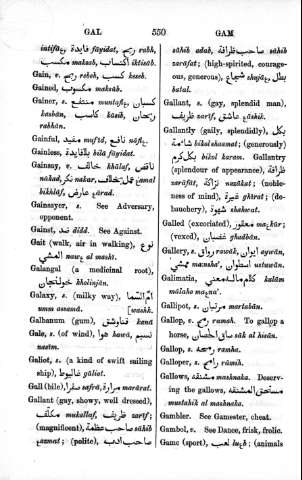 GAL 550 GAM
intifāع, فايدة fāyidat, ربح rabh,
مكسب makasb, اكتساب iktisāb.
Gain, v. ربح rabeh, كسب kaseb.
Gained, مكسوب maksūb.
Gainer, s. منتفع muntafiع, كسبان
kasbān, كاسب kāsib, ربحان
rabhān.
Gainful, مفيد mufīd, نافع nāfiع.
Gainless, بلا فايدة bilā fāyidat.
Gainsay, v. خالف khālaf, ناقض
nākad, نكر nakar, عمل خلاف عamal
bikhlāf, عارض عārad.
Gainsayer, s. See Adversary,
opponent.
Gainst, ضد didd. See Against.
Gait (walk, air in walking), نوع
المشي nawع al mashī.
Galangal (a medicinal root),
خولنجان kholinjān.
Galaxy, s. (milky way), ام السما
umm asamā. [washk.
Galbanum (gum), قناوشق kanā
Gale, s. (of wind), هوا hawā, نسيم
nasīm.
Galiot, s. (a kind of swift sailing
ship), غاليوط gāliot.
Gall (bile), صفرا safrā, مرارة marārat.
Gallant (gay, showy, well dressed),
مكلف mukallaf, ظريف zarīf;
(magnificent), صاحب عظمة sāhib
عazmat; (polite), صاحب ادب
sāhib adab, صاحب ظرافة sāhib
zarāfat; (high-spirited, courage-
ous, generous), شجاع shujāع, بطل
batal.
Gallant, s. (gay, splendid man),
ظريف zarīf, عاشق عāshik.
Gallantly (gaily, splendidly), بكل
شهامة bikol shahāmat; (generously)
بكل كرم bikol karam. Gallantry
(splendour of appearance), ظرافة
zarāfat, نزاكة nazākat; (noble-
ness of mind), غيرة ghīrat; (de-
bauchery), شهوة shahwat.
Galled (excoriated), معقور maعkūr;
(vexed), غضبان ghadbān.
Gallery, s. رواق rawāk, ايوان aywān,
ممشى mamsha', اسطوان ustuwān.
Galimatia, كلام ماله معنى kalām
mālaho maعna'.
Gallipot, s. مرطبان martabān.
Gallop, v. رمح ramah. To gallop a
horse, ساق الحصان sāk al hisān.
Gallop, s. رمحة ramha.
Galloper, s. رماح rammāh.
Gallows, مشنقة mashnaka. Deserv-
ing the gallows, مستحق المشنقة
mustahik al mashnaka.
Gambler. See Gamester, cheat.
Gambol, v. See Dance, frisk, frolic.
Game (sport), لعب luعb; (animals